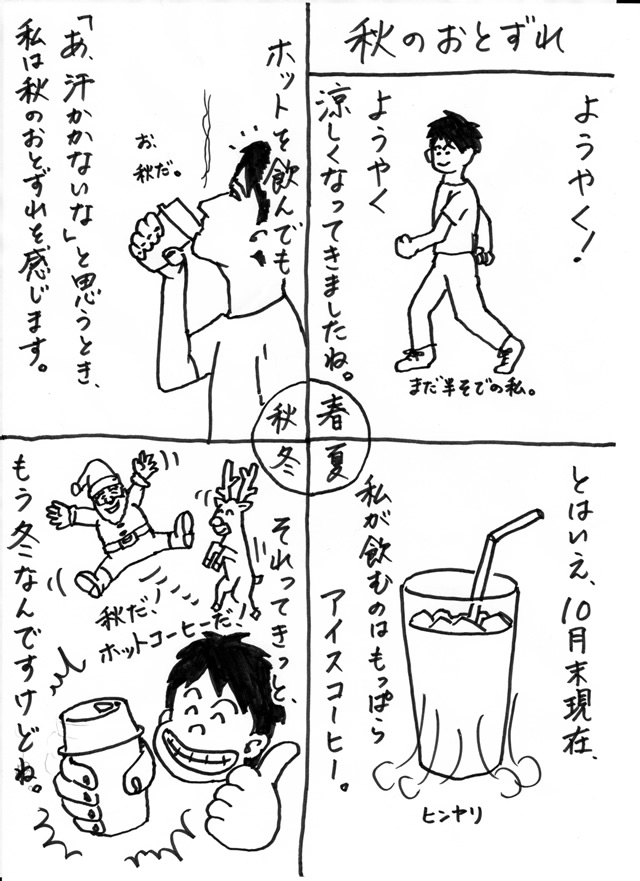 秋のおとずれ
ようやく!
ようやく
涼しくなってきましたね。
まだ半そでの私。
とはいえ、10月末現在、
私が飲むのはもっぱら
アイスコーヒー。
ヒンヤリ
ホットを飲んでも
お、
秋だ。
「あ、汗かかないな」と思うとき、
私は秋のおとずれを感じます。
それってきっと、
秋だ、
ホットコーヒーだ、
もう冬なんですけどね。
春
夏
秋
冬